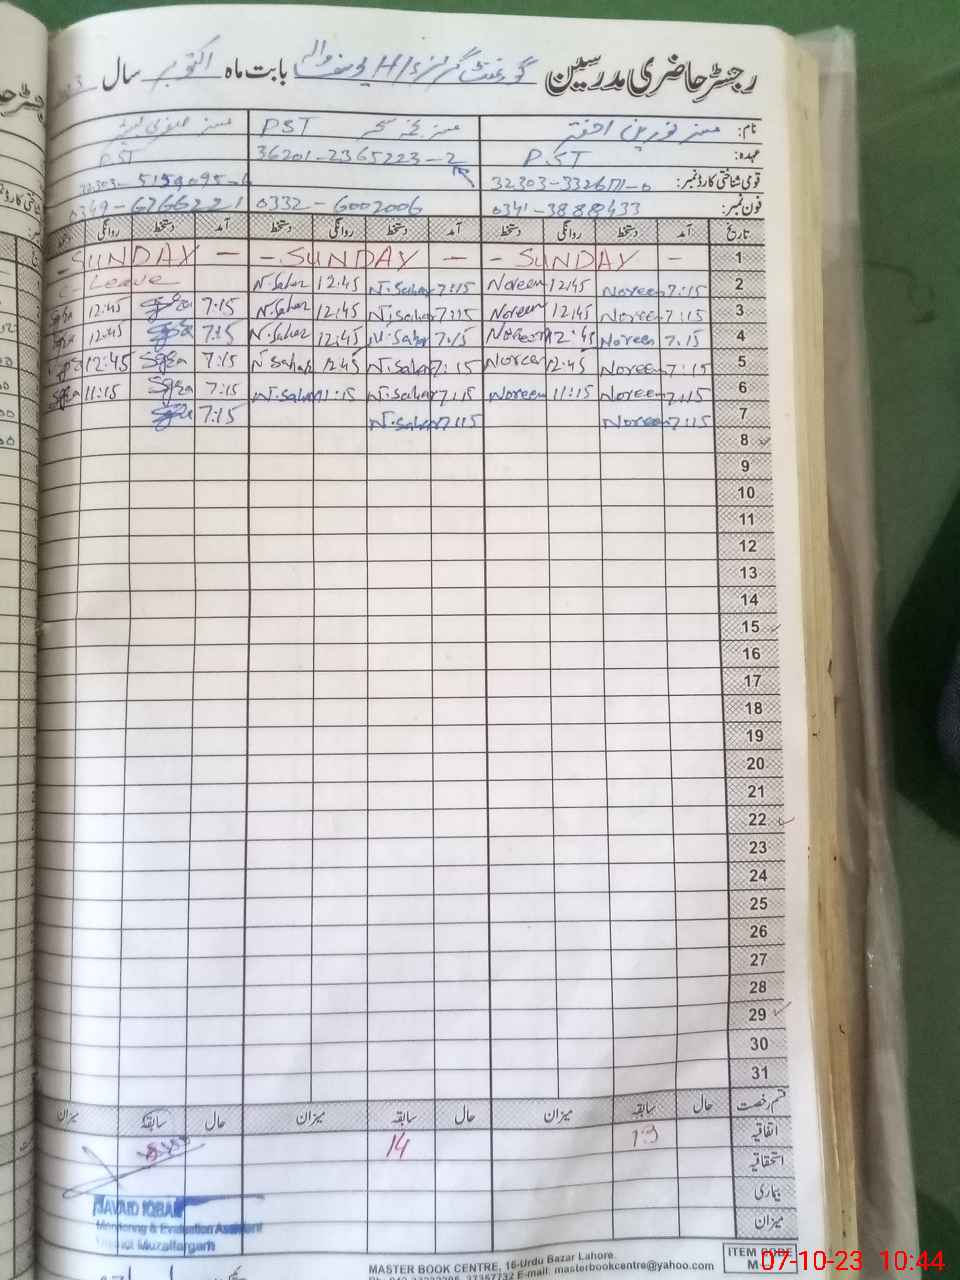 رجسٹر حاضری مدرسین گورنمنٹ گرلز H/S بابت ماہ اکتوبر سال
نام: مسز نورین اختر مسز نجمہ سحر مسز
عہدہ: P.ST PST PST
قومی شناختی کارڈ نمبر: 36201-2365223-2
فون نمبر: 0341-3888433 0332-6002006 0349-6766221
تاریخ آمد دستخط روانگی دستخط آمد دستخط روانگی دستخط آمد دستخط روانگی دستخط
1 - SUNDAY - - SUNDAY - - SUNDAY -
2 7:15 Noreen 12:45 Noreen 7:15 N.Sahar 12:45 N.Sahar C-Leave
3 7:15 Noreen 12:45 Noreen 7:15 N.Sahar 12:45 N.Sahar 7:15 12:45
4 7:15 Noreen 12:45 Noreen 7:15 N.Sahar 12:45 N.Sahar 7:15 12:45
5 7:15 Noreen 12:45 Noreen 7:15 N.Sahar 12:45 N Sahar 7:15 12:45
6 7:15 Noreen 11:15 Noreen 7:15 N.Sahar 11:15 N.Sahar 7:15 11:15
7 7:15 Noreen 7:15 N.Sahar 7:15
8
9
10
11
12
13
14
15
16
17
18
19
20
21
22
23
24
25
26
27
28
29
30
31
قسم رخصت حال سابقہ میزان حال سابقہ میزان حال سابقہ میزان
اتفاقیہ 13 14
استحقاقیہ
بیماری
میزان
JAVAID IQBAL
Monitoring & Evaluation Assistant
District Muzaffargarh
MASTER BOOK CENTRE, 16-Urdu Bazar Lahore.
E-mail: masterbookcentre@yahoo.com
ITEM CODE
07-10-23 10:44